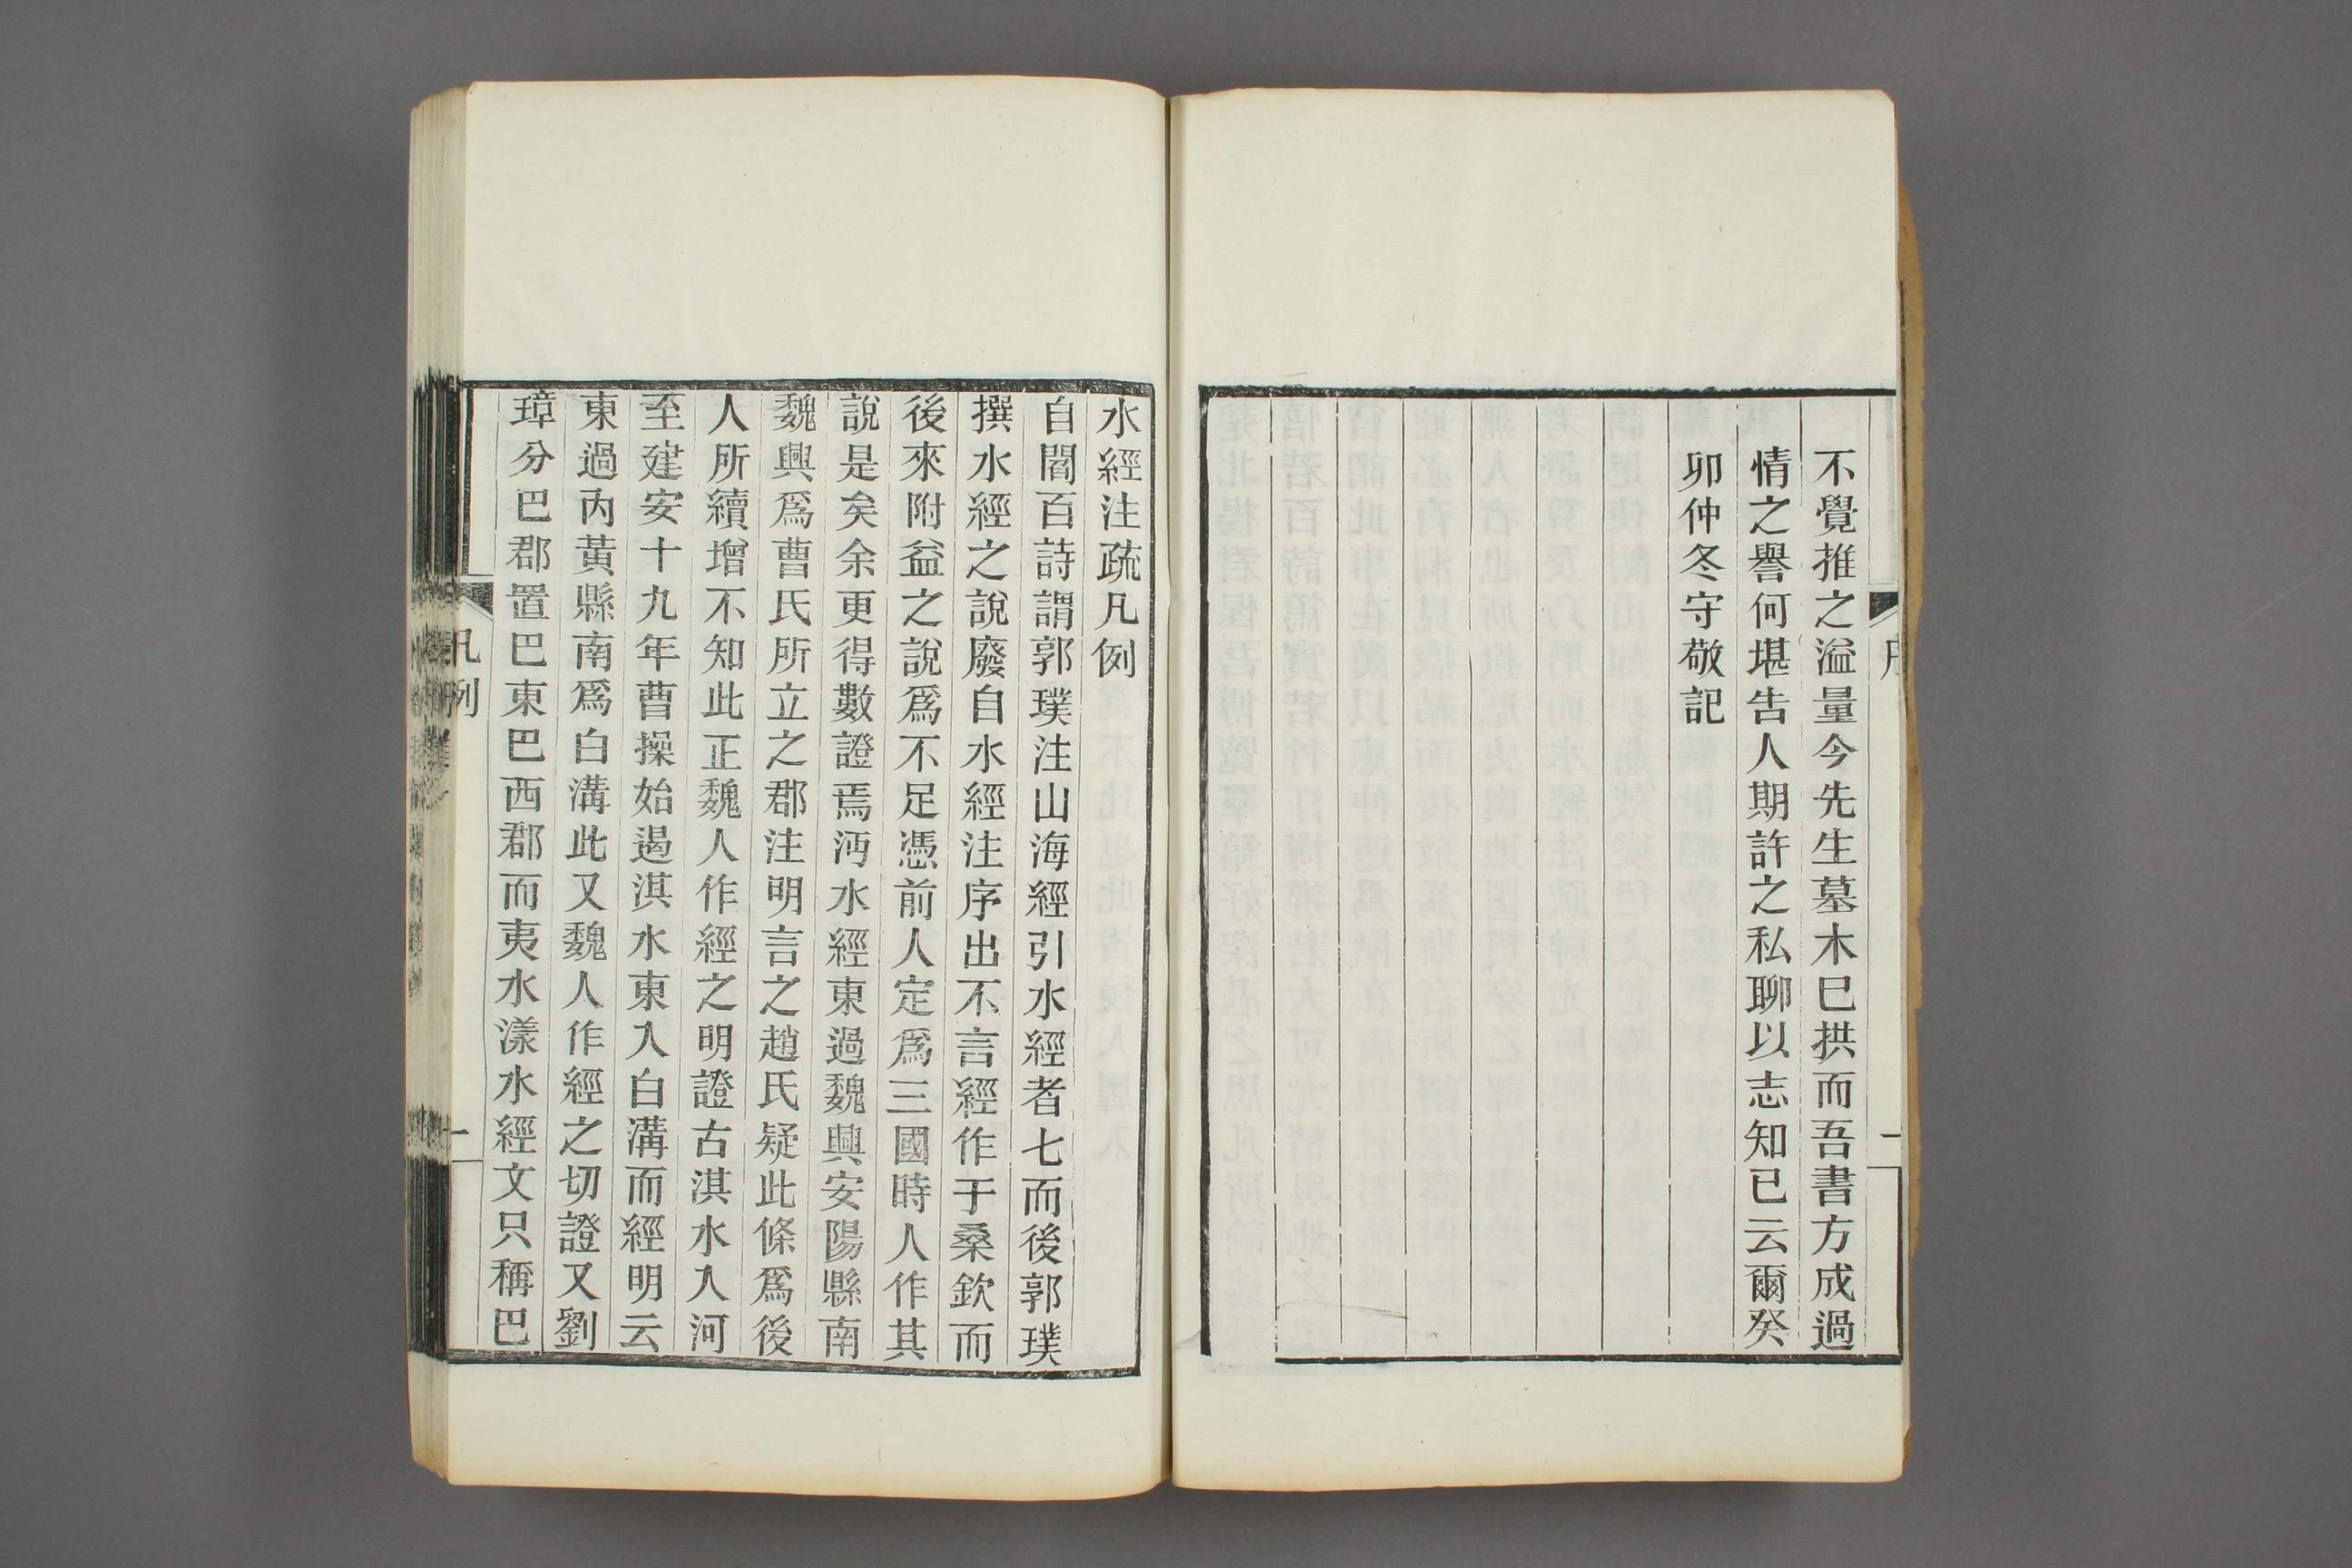 不覺推之溢量今先生墓木巳拱而吾書方成過
情之譽何堪告人期許之私聊以志知已云爾癸
卯仲冬守敬記
水經注疏凡例
自閻百詩謂郭璞注山海經引水經者七而後郭璞
撰水經之說廢自水經注序出不言經作于桑欽而
後來附益之說爲不足憑前人定爲三國時人作其
說是矣余更得數證焉沔水經東過魏興安陽縣南
魏興爲曹氏所立之郡注明言之趙氏疑此條爲後
人所續增不知此正魏人作經之明證古淇水入河
至建安十九年曹操始遏淇水東入白溝而經明云
東過內黃縣南爲白溝此又魏人作經之切證又劉
璋分巴郡置巴東巴西郡而夷水漾水經文只稱巴
凡例
一